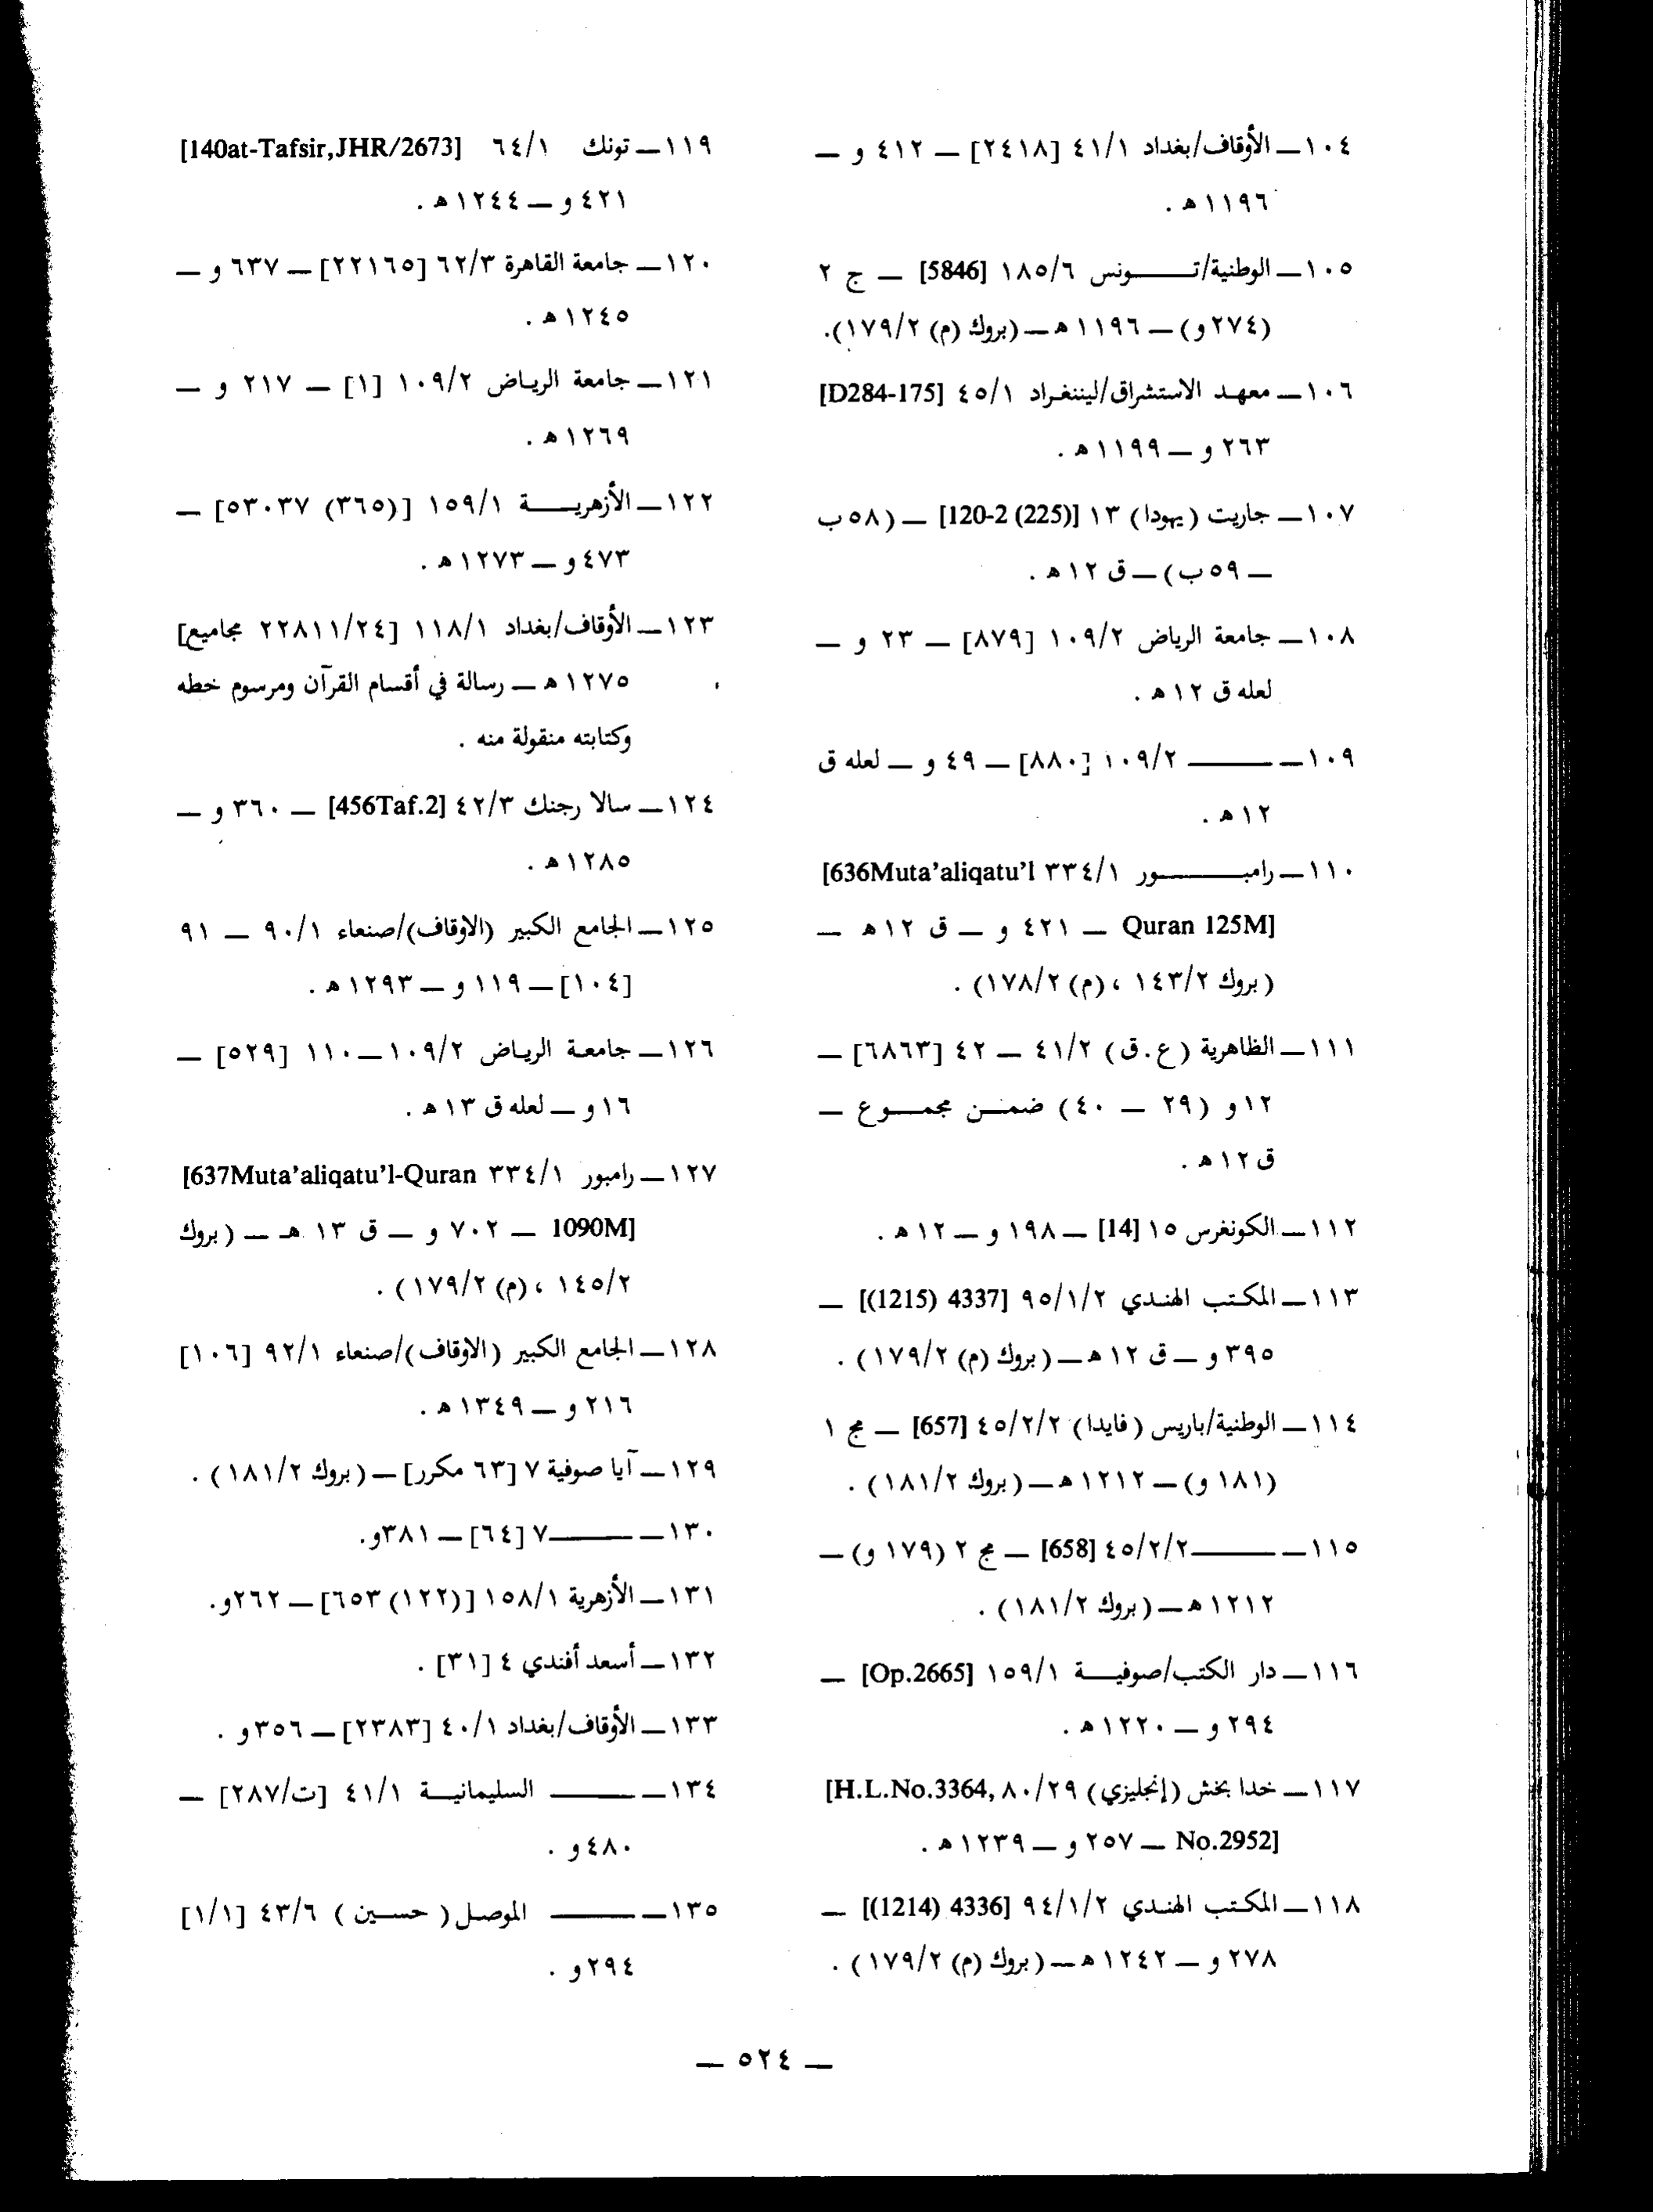 ١٠٤ــ الأوقاف/بغداد ٤١/١ [٢٤١٨] ــ ٤١٢ و ــ
١١٩٦هـ .
١٠٥ــ الوطنية/تـــونس ١٨٥/٦ [5846] ــ ج ٢
(٢٧٤و) ــ ١١٩٦هـ ــ (بروك (م) ١٧٩/٢).
١٠٦ــ معهد الاستشراق/ليننغراد ٤٥/١ [D284-175]
٢٦٣ و ــ ١١٩٩هـ .
١٠٧ــ جاريت (يهودا) ١٣ [(225) 120-2] ــ (٥٨ب
ــ ٥٩ب) ــ ق ١٢هـ .
١٠٨ــ جامعة الرياض ١٠٩/٢ [٨٧٩] ــ ٢٣ و ــ
لعله ق ١٢هـ .
١٠٩ــ ــــــ ١٠٩/٢ [٨٨٠] ــ ٤٩ و ــ لعله ق
١٢هـ .
١١٠ــ رامبـــور ٣٣٤/١ [636Muta'aliqatu'l
Quran 125M] ــ ٤٢١ و ــ ق ١٢هـ ــ
(بروك ١٤٣/٢ ، (م) ١٧٨/٢) .
١١١ــ الظاهرية (ع.ق) ٤١/٢ ــ ٤٢ [٦٨٦٣] ــ
١٢و (٢٩ ــ ٤٠) ضمن مجموع ــ
ق ١٢هـ .
١١٢ــ الكونغرس ١٥ [14] ــ ١٩٨ و ــ ١٢هـ .
١١٣ــ المكتب الهندي ٩٥/١/٢ [(1215) 4337] ــ
٣٩٥ و ــ ق ١٢هـ ــ (بروك (م) ١٧٩/٢) .
١١٤ــ الوطنية/باريس (فايدا) ٤٥/٢/٢ [657] ــ مج ١
(١٨١ و) ــ ١٢١٢هـ ــ (بروك ١٨١/٢) .
١١٥ــ ــــــ ٤٥/٢/٢ [658] ــ مج ٢ (١٧٩ و) ــ
١٢١٢هـ ــ (بروك ١٨١/٢) .
١١٦ــ دار الكتب/صوفيـــة ١٥٩/١ [Op.2665] ــ
٢٩٤ و ــ ١٢٢٠هـ .
١١٧ــ خدا بخش (إنجليزي) ٨٠/٢٩ [H.L.No.3364,
No.2952] ــ ٢٥٧ و ــ ١٢٣٩هـ .
١١٨ــ المكتب الهندي ٩٤/١/٢ [(1214) 4336] ــ
٢٧٨ و ــ ١٢٤٢هـ ــ (بروك (م) ١٧٩/٢) .
١١٩ــ تونك ٦٤/١ [140at-Tafsir,JHR/2673]
٤٢١ و ــ ١٢٤٤هـ .
١٢٠ــ جامعة القاهرة ٦٢/٣ [٢٢١٦٥] ــ ٦٣٧ و ــ
١٢٤٥هـ .
١٢١ــ جامعة الرياض ١٠٩/٢ [١] ــ ٢١٧ و ــ
١٢٦٩هـ .
١٢٢ــ الأزهريـــة ١٥٩/١ [(٣٦٥) ٥٣٠٣٧] ــ
٤٧٣ و ــ ١٢٧٣هـ .
١٢٣ــ الأوقاف/بغداد ١١٨/١ [٢٢٨١١/٢٤ مجاميع]
١٢٧٥هـ ــ رسالة في أقسام القرآن ومرسوم خطه
وكتابته منقولة منه .
١٢٤ــ سالا رجنك ٤٢/٣ [456Taf.2] ــ ٣٦٠ و ــ
١٢٨٥هـ .
١٢٥ــ الجامع الكبير (الاوقاف)/صنعاء ٩٠/١ ــ ٩١
[١٠٤] ــ ١١٩ و ــ ١٢٩٣هـ .
١٢٦ــ جامعة الرياض ١٠٩/٢ــ١١٠ [٥٢٩] ــ
١٦و ــ لعله ق ١٣هـ .
١٢٧ــ رامبور ٣٣٤/١ [637Muta'aliqatu'l-Quran
1090M] ــ ٧٠٢ و ــ ق ١٣ هـ ــ (بروك
١٤٥/٢ ، (م) ١٧٩/٢) .
١٢٨ــ الجامع الكبير (الاوقاف)/صنعاء ٩٢/١ [١٠٦]
٢١٦ و ــ ١٣٤٩هـ .
١٢٩ــ آيا صوفية ٧ [٦٣ مكرر] ــ (بروك ١٨١/٢) .
١٣٠ــ ــــــ ٧ [٦٤] ــ ٣٨١و.
١٣١ــ الأزهرية ١٥٨/١ [(١٢٢) ٦٥٣] ــ ٢٦٢و.
١٣٢ــ أسعد أفندي ٤ [٣١] .
١٣٣ــ الأوقاف/بغداد ٤٠/١ [٢٣٨٣] ــ ٣٥٦و .
١٣٤ــ ــــــ السليمانيـــة ٤١/١ [ت/٢٨٧] ــ
٤٨٠و .
١٣٥ــ ــــــ الموصل (حسين) ٤٣/٦ [١/١]
٢٩٤و .
ــ ٥٢٤ ــ